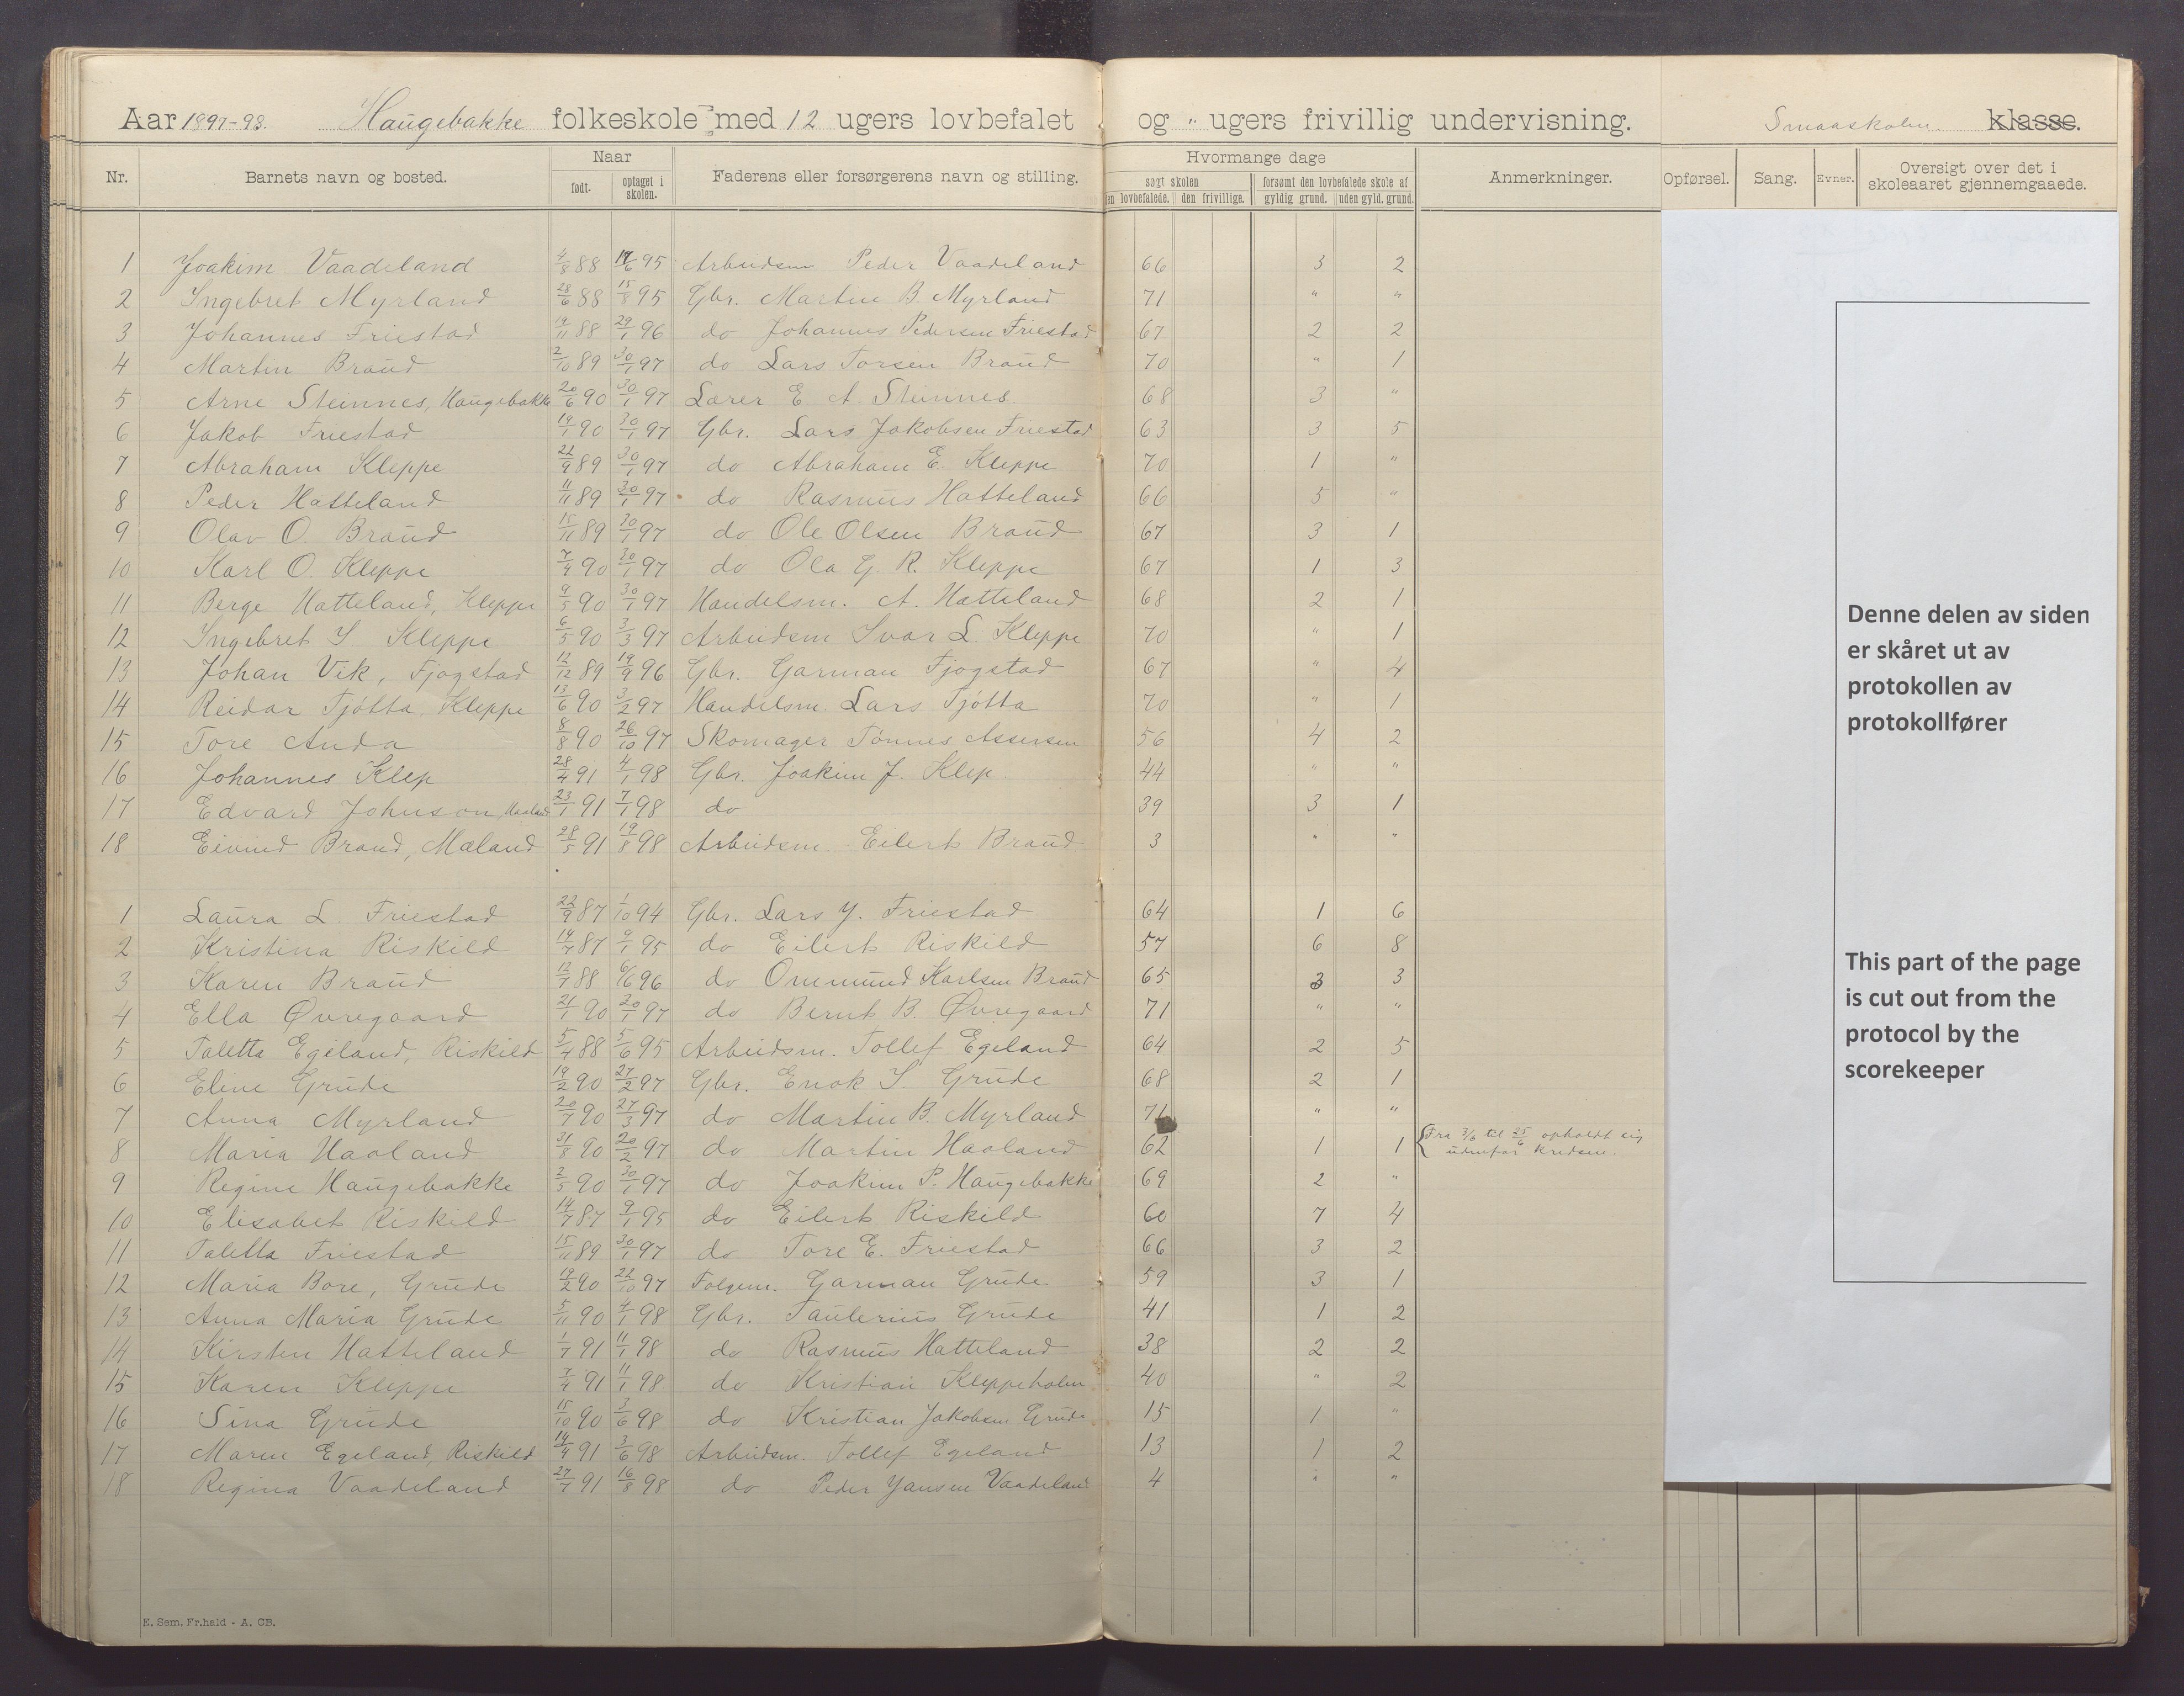 Aar 1897-98. Haugebakke folkeskole med 12 ugers lovbefalet og " ugers frivillig undervisning. Smaaskolen klasse.
Nr. Barnets navn og bosted. Naar født. optaget i skolen. Faderens eller forsørgerens navn og stilling. Hvormange dage søgt skolen den lovbefalede. den frivillige. forsømt den lovbefalede skole af gyldig grund. uden gyld. grund. Anmerkninger. Opførsel. Sang. Evner. Oversigt over det i skoleaaret gjennemgaaede.
1 Joakim Vaadeland 4/8 88 17/6 95 Arbeidsm Peder Vaadeland 66 3 2
2 Ingebret Myrland 28/6 88 15/8 95 Gbr. Martin B. Myrland 71 " "
3 Johannes Friestad 19/11 88 29/1 96 do Johannes Pedersen Friestad 67 2 2
4 Martin Braud 2/10 89 30/1 97 do Lars Torsen Braud 70 " 1
5 Arne Steinnes, Haugebakke 20/6 90 30/1 97 Lærer E. A. Steinnes. 68 3 "
6 Jakob Friestad 14/1 90 30/1 97 Gbr. Lars Jakobsen Friestad 63 3 5
7 Abraham Kleppe 22/9 89 30/1 97 do Abraham E. Kleppe 70 1 "
8 Peder Hatteland 11/11 89 30/1 97 do Rasmus Hatteland 66 5 "
9 Olav O. Braud 15/11 89 30/1 97 do Ole Olsen Braud 67 3 1
10 Karl O. Kleppe 7/4 90 30/1 97 do Ola G. R. Kleppe 67 1 3
11 Berge Hatteland, Kleppe 9/5 90 30/1 97 Handelsm. A. Hatteland 68 2 1
12 Ingebret I. Kleppe 6/5 90 3/3 97 Arbeidsm Ivar L. Kleppe 70 " 1
13 Johan Vik, Fjogstad 12/12 89 19/9 96 Gbr. Garman Fjogstad 67 " 4
14 Reidar Tjøtta, Kleppe 13/6 90 3/2 97 Handelsm. Lars Tjøtta 70 " 1
15 Tore Anda 8/8 90 26/10 97 Skomager Tønnes Assersen 56 4 2
16 Johannes Klep 28/4 91 4/1 98 Gbr. Joakim J. Klep. 44 " "
17 Edvard Johnson, Haaland 23/1 91 7/1 98 do 39 3 1
18 Eivind Braud, Mæland 28/5 91 19/8 98 Arbeidsm. Eilert Braud 3 " "
1 Laura L. Friestad 22/9 87 1/10 94 Gbr. Lars Y. Friestad 64 1 6
2 Kristina Riskild 14/7 87 9/1 95 do Eilert Riskild 57 6 8
3 Karen Braud 12/7 88 6/6 96 do Ommund Karlsen Braud 65 3 3
4 Ella Øvregaard 21/1 90 30/1 97 do Bernt B. Øvregaard 71 " "
5 Taletta Egeland, Riskild 5/4 88 5/6 95 Arbeidsm. Tollef Egeland 64 2 5
6 Eline Grude 19/2 90 27/2 97 Gbr. Enok S. Grude 68 2 1
7 Anna Myrland 20/7 90 27/3 97 do Martin B. Myrland 71 " "
8 Maria Haaland 31/8 90 20/2 97 do Martin Haaland 62 1 1 Fra 3/6 til 25/6 opholdt sig
udenfor kredsen.
9 Regine Haugebakke 2/5 90 30/1 97 do Joakim P. Haugebakke 69 2 "
10 Elisabet Riskild 14/7 87 9/1 95 do Eilert Riskild 60 7 4
11 Taletta Friestad 15/11 89 30/1 97 do Tore E. Friestad 66 3 2
12 Maria Bore, Grude 19/2 90 22/10 97 Folgem. Garman Grude 59 3 1
13 Anna Maria Grude 5/11 90 4/1 98 Gbr. Taulerius Grude 41 1 2
14 Kirsten Hatteland 1/7 91 11/1 98 do Rasmus Hatteland 38 2 2
15 Karen Kleppe 7/4 91 11/1 98 do Kristian Kleppeholen 40 " 2
16 Sina Grude 15/10 90 3/6 98 do Kristian Jakobsen Grude 15 1 "
17 Maren Egeland, Riskild 14/4 91 3/6 98 Arbeidsm. Tollef Egeland 13 1 2
18 Regina Vaadeland 27/7 91 16/8 98 do Peder Jansen Vaadeland 4 " "
E. Sem, Fr.hald - A. CB.
Denne delen av siden
er skåret ut av
protokollen av
protokollfører
This part of the page
is cut out from the
protocol by the
scorekeeper